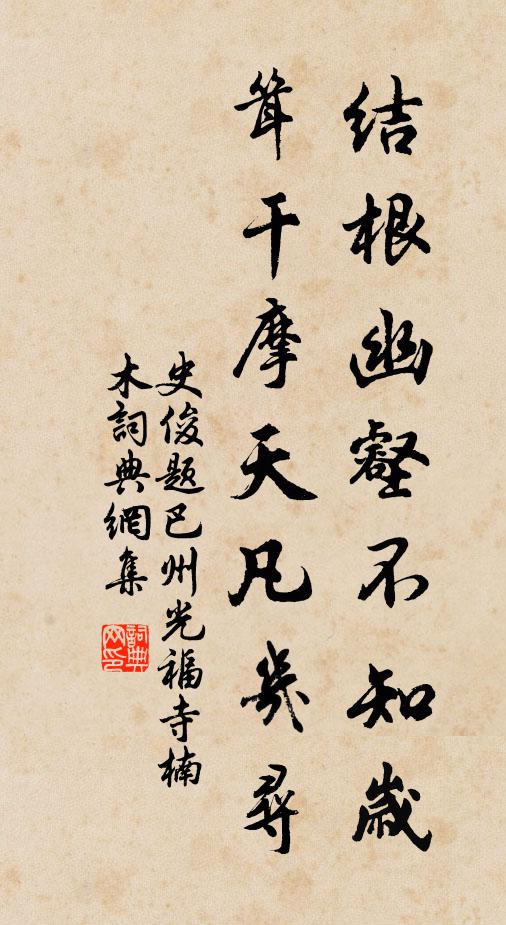 结根幽壑不知岁
耸干摩天凡几寻
史俊题巴州光福寺楠
木詞典網集
詞典
网印